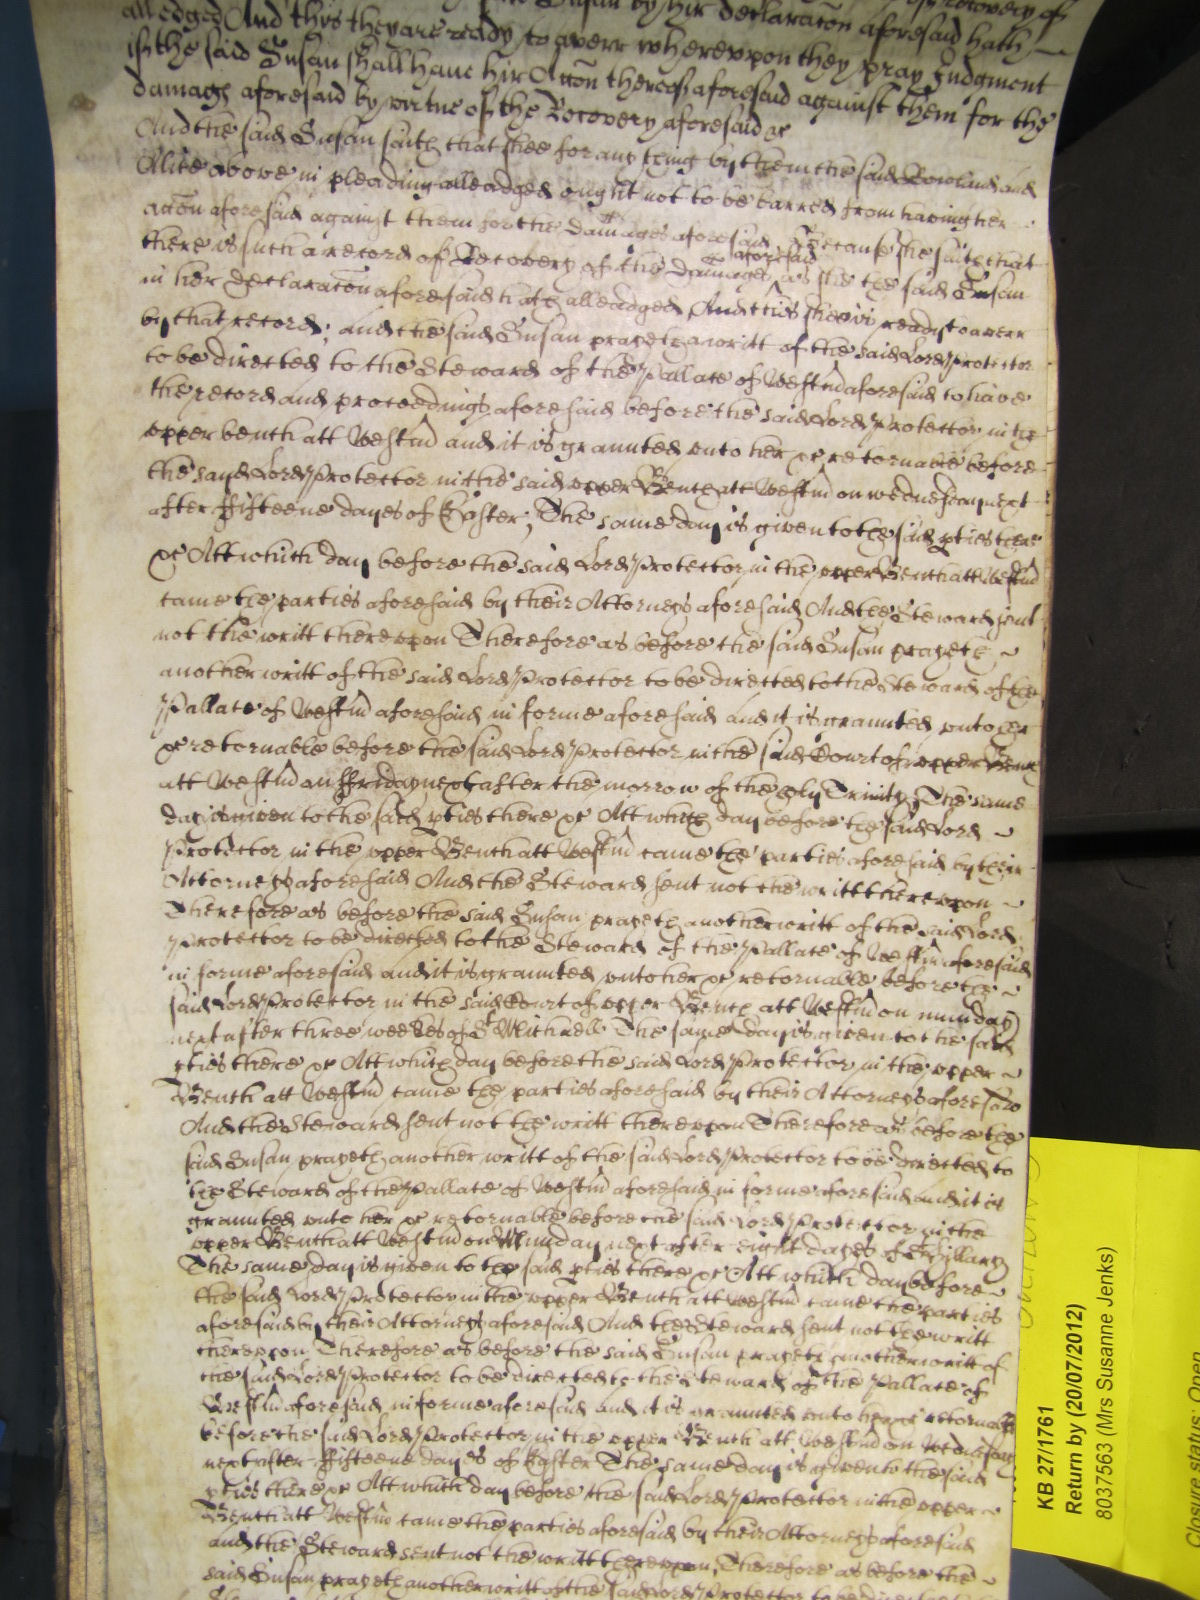 Susan by hir declaracōn aforesaid hath
alledged And this they are ready to averr wherevpon they pray Judgment
if the said Susan shall have hir Accōn thereof aforesaid against them for the
damage aforesaid by virtue of the Recovery aforesaid &c
And the said Susan saith that shee for any thing by them the said Rowland and
Alice above in pleading alleadged ought not to be barred from having her
accōn aforesaid against them for the damages aforesaid Because she saith that
there is such a record of Recovery of the damages aforesaid as she the said Susan
in her declaracōn aforesaid hath alleadged And this shee is ready to averr
by that record; and the said Susan prayeth a writt of the said Lord Protector
to be directed to the Steward of the Pallace of Westm̄ aforesaid to have
the record and proceedings aforesaid before the said Lord Protector in the
vpper bench att Westm̄ and it is graunted vnto her &c retornable before
the sayd Lord Protector in the said vpper Bench att Westm̄ on wednesday next
after ffifteene dayes of Easter; The same day is given to the said pties there
&c Att which day before the said Lord Protector in the vpper Bench att Westm̄
came the parties aforesaid by their Attorneys aforesaid And the Steward sent
not the writt therevpon Therefore as before the said Susan prayeth
another writt of the said Lord Protector to be directed to the Steward of the
Pallace of Westm̄ aforesaid in forme aforesaid and it is graunted vnto her
&c retornable before the said Lord Protector in the said Court of vpper Bench
att Westm̄ on ffryday next after the morrow of the holy Trinity The same
day is given to the said pties there &c Att which day before the said Lord
Protector in the vpper Bench att Westm̄ came the parties aforesaid by their
Attorneys aforesaid And the Steward sent not the writt therevpon
Therefore as before the said Susan prayeth another writt of the said Lord
Protector to be directed to the Steward of the Pallace of Westm̄ aforesaid
in forme aforesaid and it is graunted vnto her &c retornable before the
said Lord Protector in the said Court of vpper Bench att Westm̄ on munday
next after three weekes of St Michaell The same day is given to the said
pties there &c Att which day before the said Lord Protector in the vpper
Bench att Westm̄ came the parties aforesaid by their Attorneys aforesaid
And the Steward sent not the writt therevpon Therefore as before the
said Susan prayeth another writt of the said Lord Protector to be directed to
the Steward of the Pallace of Westm̄ aforesaid in forme aforesaid and it is
graunted vnto her &c retornable before the said Lord Protector in the
vpper Bench att Westm̄ on Munday next after eight dayes of St Hillary
The same day is given to the said pties there &c Att which day before
the said Lord Protector in the vpper Bench att Westm̄ came the parties
aforesaid by their Attorneys aforesaid And the Steward sent not the writt
therevpon Therefore as before the said Susan prayeth another writt of
the said Lord Protector to be directed to the Steward of the Pallace of
Westm̄ aforesaid in forme aforesaid and it is graunted vnto her &c retornable
before the said Lord Protector in the vpper Bench att Westm̄ on Wednesday
next after ffifteene dayes of Easter The same day is given to the said
pties there &c Att which day before the said Lord Protector in the vpper
Bench att Westm̄ came the parties aforesaid by their Attorneys aforesaid
and the Steward sent not the writt therevpon, Therefore as before the
said Susan prayeth another writt of the said Lord Protector to be directed
KB 27/1761
Return by (20/07/2012)
8037563 (Mrs Susanne Jenks)
Closure status: Open